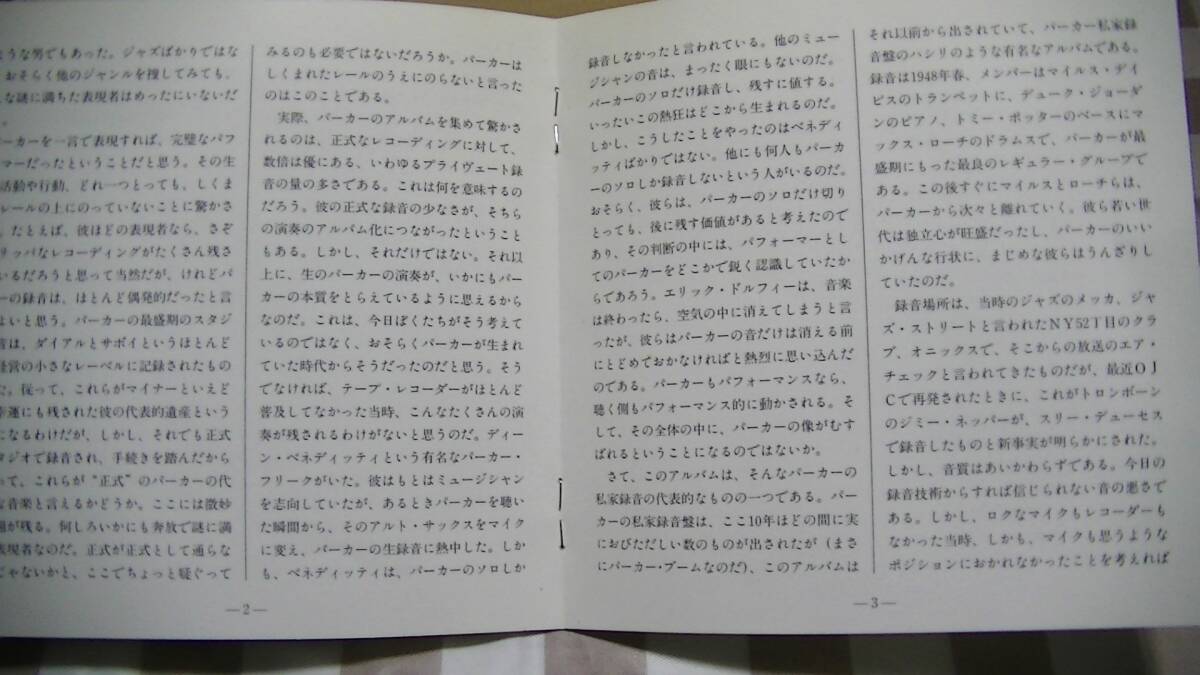 ような男でもあった。ジャズばかりではな
おそらく他のジャンルを捜してみても、
な謎に満ちた表現者はめったにいないだ
。
ーカーを一言で表現すれば、完璧なパフ
マーだったということだと思う。その生
活動や行動、どれ一つとっても、しくま
レールの上にのっていないことに驚かさ
。たとえば、彼ほどの表現者なら、さぞ
リッパなレコーディングがたくさん残さ
いるだろうと思って当然だが、けれどパ
ーの録音は、ほとんど偶発的だったと言
よいと思う。パーカーの最盛期のスタジ
音は、ダイアルとサボイというほとんど
経営の小さなレーベルに記録されたもの
だ。従って、これらがマイナーといえど
幸運にも残された彼の代表的遺産という
になるわけだが、しかし、それでも正式
タジオで録音され、手続きを踏んだから
って、これらが“正式”のパーカーの代
な音楽と言えるかどうか。ここには微妙
題が残る。何しろいかにも奔放で謎に満
表現者なのだ。正式が正式として通らな
じゃないかと、ここでちょっと疑ぐって
みるのも必要ではないだろうか。パーカーは
しくまれたレールのうえにのらないと言った
のはこのことである。
実際、パーカーのアルバムを集めて驚かさ
れるのは、正式なレコーディングに対して、
数倍は優にある、いわゆるプライヴェート録
音の量の多さである。これは何を意味するの
だろう。彼の正式な録音の少なさが、そちら
の演奏のアルバム化につながったということ
もある。しかし、それだけではない。それ以
上に、生のパーカーの演奏が、いかにもパー
カーの本質をとらえているように思えるから
なのだ。これは、今日ぼくたちがそう考えて
いるのではなく、おそらくパーカーが生まれ
ていた時代からそうだったのだと思う。そう
でなければ、テープ・レコーダーがほとんど
普及してなかった当時、こんなたくさんの演
奏が残されるわけがないと思うのだ。ディー
ン・ベネディッティという有名なパーカー・
フリークがいた。彼はもとはミュージシャン
を志向していたが、あるときパーカーを聴い
た瞬間から、そのアルト・サックスをマイク
に変え、パーカーの生録音に熱中した。しか
も、ベネディッティは、パーカーのソロしか
—2—
録音しなかったと言われている。他のミュー
ジシャンの音は、まったく眼にもないのだ。
パーカーのソロだけ録音し、残すに値する。
いったいこの熱狂はどこから生まれるのだ。
しかし、こうしたことをやったのはベネディ
ッティばかりではない。他にも何人もパーカ
ーのソロしか録音しないという人がいるのだ。
おそらく、彼らは、パーカーのソロだけ切り
とっても、後に残す価値があると考えたので
あり、その判断の中には、パフォーマーとし
てのパーカーをどこかで鋭く認識していたか
らであろう。エリック・ドルフィーは、音楽
は終わったら、空気の中に消えてしまうと言
ったが、彼らはパーカーの音だけは消える前
にとどめておかなければと熱烈に思い込んだ
のである。パーカーもパフォーマンスなら、
聴く側もパフォーマンス的に動かされる。そ
して、その全体の中に、パーカーの像がむす
ばれるということになるのではないか。
さて、このアルバムは、そんなパーカーの
私家録音の代表的なものの一つである。パー
カーの私家録音盤は、ここ10年ほどの間に実
におびただしい数のものが出されたが（まさ
にパーカー・ブームなのだ）、このアルバムは
それ以前から出されていて、パーカー私家録
音盤のハシリのような有名なアルバムである。
録音は1948年春、メンバーはマイルス・デイ
ビスのトランペットに、デューク・ジョーダ
ンのピアノ、トミー・ポッターのベースにマ
ックス・ローチのドラムスで、パーカーが最
盛期にもった最良のレギュラー・グループで
ある。この後すぐにマイルスとローチらは、
パーカーから次々と離れていく。彼ら若い世
代は独立心が旺盛だったし、パーカーのいい
かげんな行状に、まじめな彼らはうんざりし
ていたのだ。
録音場所は、当時のジャズのメッカ、ジャ
ズ・ストリートと言われたNY52丁目のクラ
ブ、オニックスで、そこからの放送のエア・
チェックと言われてきたものだが、最近OJ
Cで再発されたときに、これがトロンボーン
のジミー・ネッパーが、スリー・デューセス
で録音したものと新事実が明らかにされた。
しかし、音質はあいかわらずである。今日の
録音技術からすれば信じられない音の悪さで
ある。しかし、ロクなマイクもレコーダーも
なかった当時、しかも、マイクも思うような
ポジションにおかれなかったことを考えれば
—3—